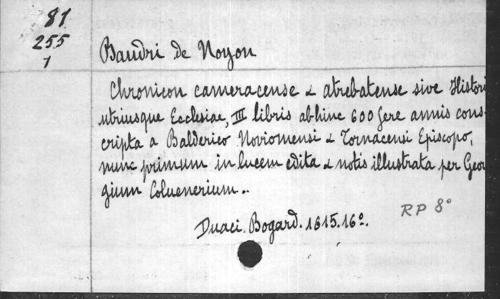 81
255
1
Baudri de Noyon
Chronicon cameracense & atrebatense sive Histori
utriusque Ecclesiae, III libris abhinc 600 fere annis cons-
cripta a Balderico Noviomensi & Tornacensi Episcopo,
nunc primum in lucem edita & notis illustrata per Geor
gium Colvenerium..
Duaci. Bogard. 1615. 16º.
RP 8º